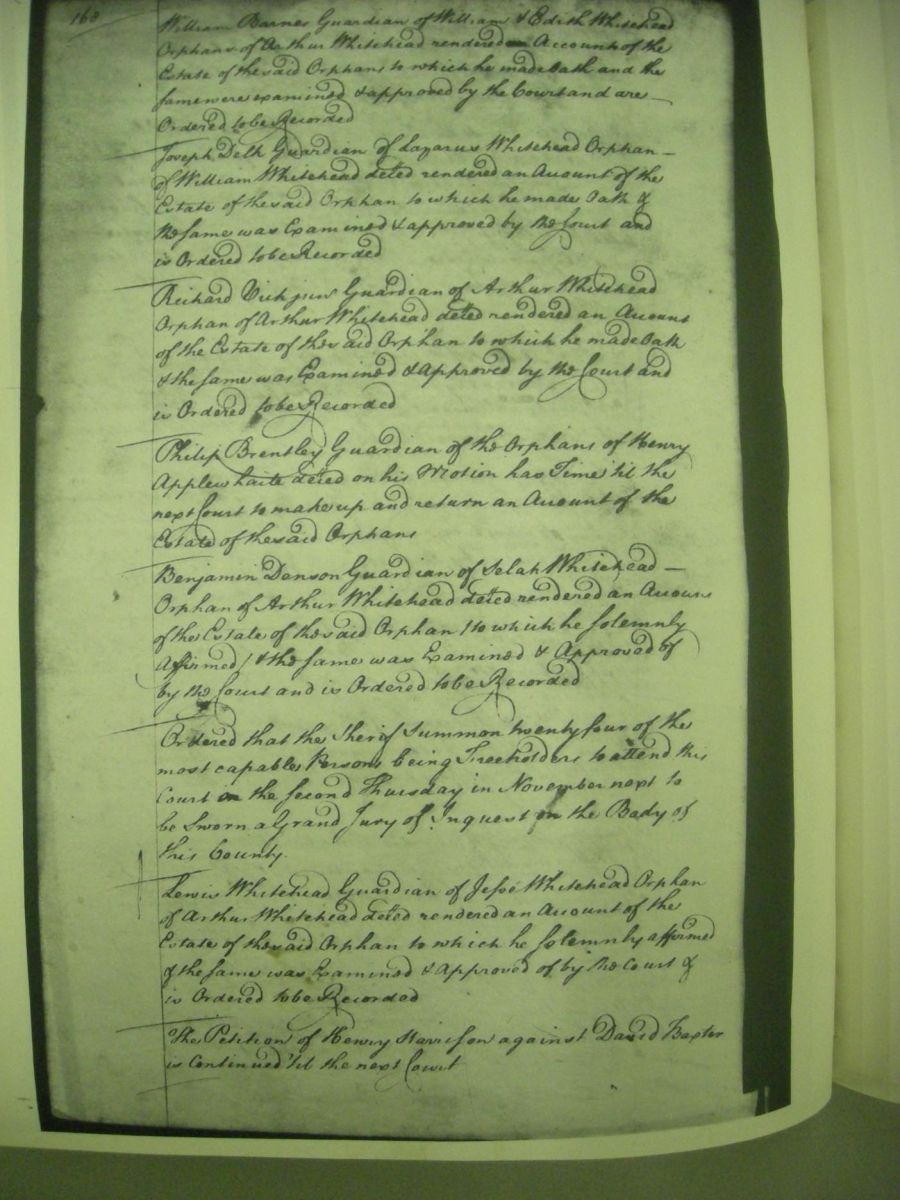 168
William Barnes Guardian of William & Edith Whitehead
Orphans of Arthur Whitehead rendered Account of the
Estate of the said Orphans to which he made Oath and the
same were examined & approved by the Court and are
Ordered to be Recorded
Joseph Delk Guardian of Lazarus Whitehead Orphan
of William Whitehead deced rendered an Account of the
Estate of the said Orphan to which he made Oath &
the same was Examined & approved by the Court and
is Ordered to be Recorded
Richard Vick junr Guardian of Arthur Whitehead
Orphan of Arthur Whitehead deced rendered an Account
of the Estate of the said Orphan to which he made Oath
& the same was Examined & Approved by the Court and
is Ordered to be Recorded
Philip Brentley Guardian of the Orphans of Henry
Applewhaite deced on his Motion has Time 'til the
next Court to make up and return an Account of the
Estate of the said Orphans
Benjamin Denson Guardian of Selah Whitehead
Orphan of Arthur Whitehead deced rendered an Account
of the Estate of the said Orphan (to which he solemnly
Affirmed) & the same was Examined & Approved of
by the Court and is Ordered to be Recorded
Ordered that the Sherif Summon twenty four of the
most capable Persons being Freeholders to attend this
Court on the second Thursday in November next to
be Sworn a Grand Jury of Inquest on the Body of
this County.
Lewis Whitehead Guardian of Jesse Whitehead Orphan
of Arthur Whitehead deced rendered an Account of the
Estate of the said Orphan to which he solemnly affirmed
& the same was Examined & Approved of by the Court &
is Ordered to be Recorded
The Petition of Henry Harrison against David Baxter
is Continued 'til the next Court